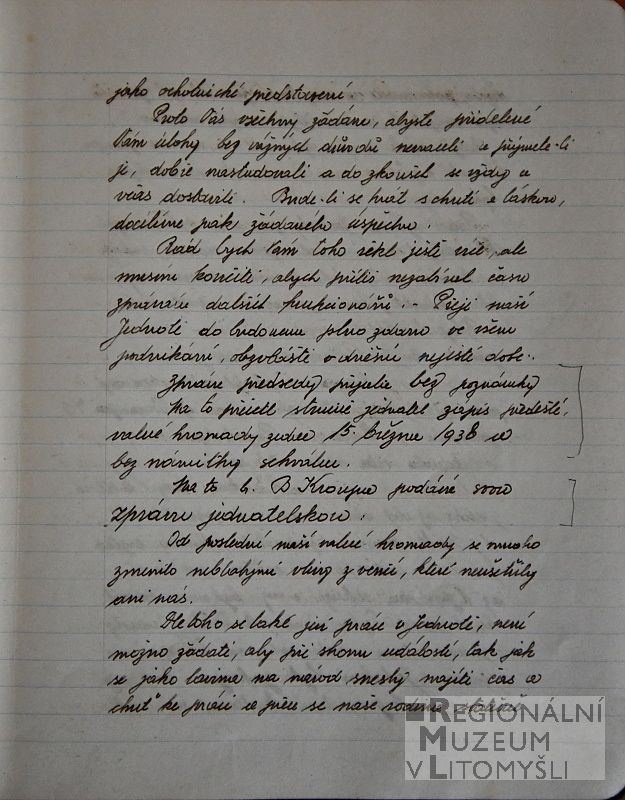 jako ochotnické představení
Proto Vás všechny žádám, abyste přidělené
Vám úlohy bez vážných důvodů nevraceli a přijmete-li
je, dobře nastudovali a do zkoušek se vždy a
včas dostavili. Bude-li se hrát s chutí a láskou,
docílíme pak žádaného úspěchu.
Rád bych Vám toho řekl ještě více, ale
musím končiti, abych příliš nezabíral času
zprávám dalších funkcionářů. - Přeji naší
Jednotě do budoucna plno zdaru ve všem
podnikání, obzvláště v dnešní nejisté době.
Zpráva předsedy přijata bez poznámky
Na to přečetl stručně jednatel zápis předešlé
valné hromady ze dne 15. března 1938 a
bez námitky schválen.
Na to b. B Kroupa podává svou
zprávu jednatelskou.
Od poslední naší valné hromady se mnoho
změnilo neblahými vlivy z venčí, které neušetřily
ani nás.
Dle toho se také jeví práce v Jednotě, není
možno žádati, aby při shonu událostí, tak jak
se jako lavina na národ snesly najíti čas a
chuť ke práci a přece se naše rodina
REGIONÁLNÍ
MUZEUM
V LITOMYŠLI